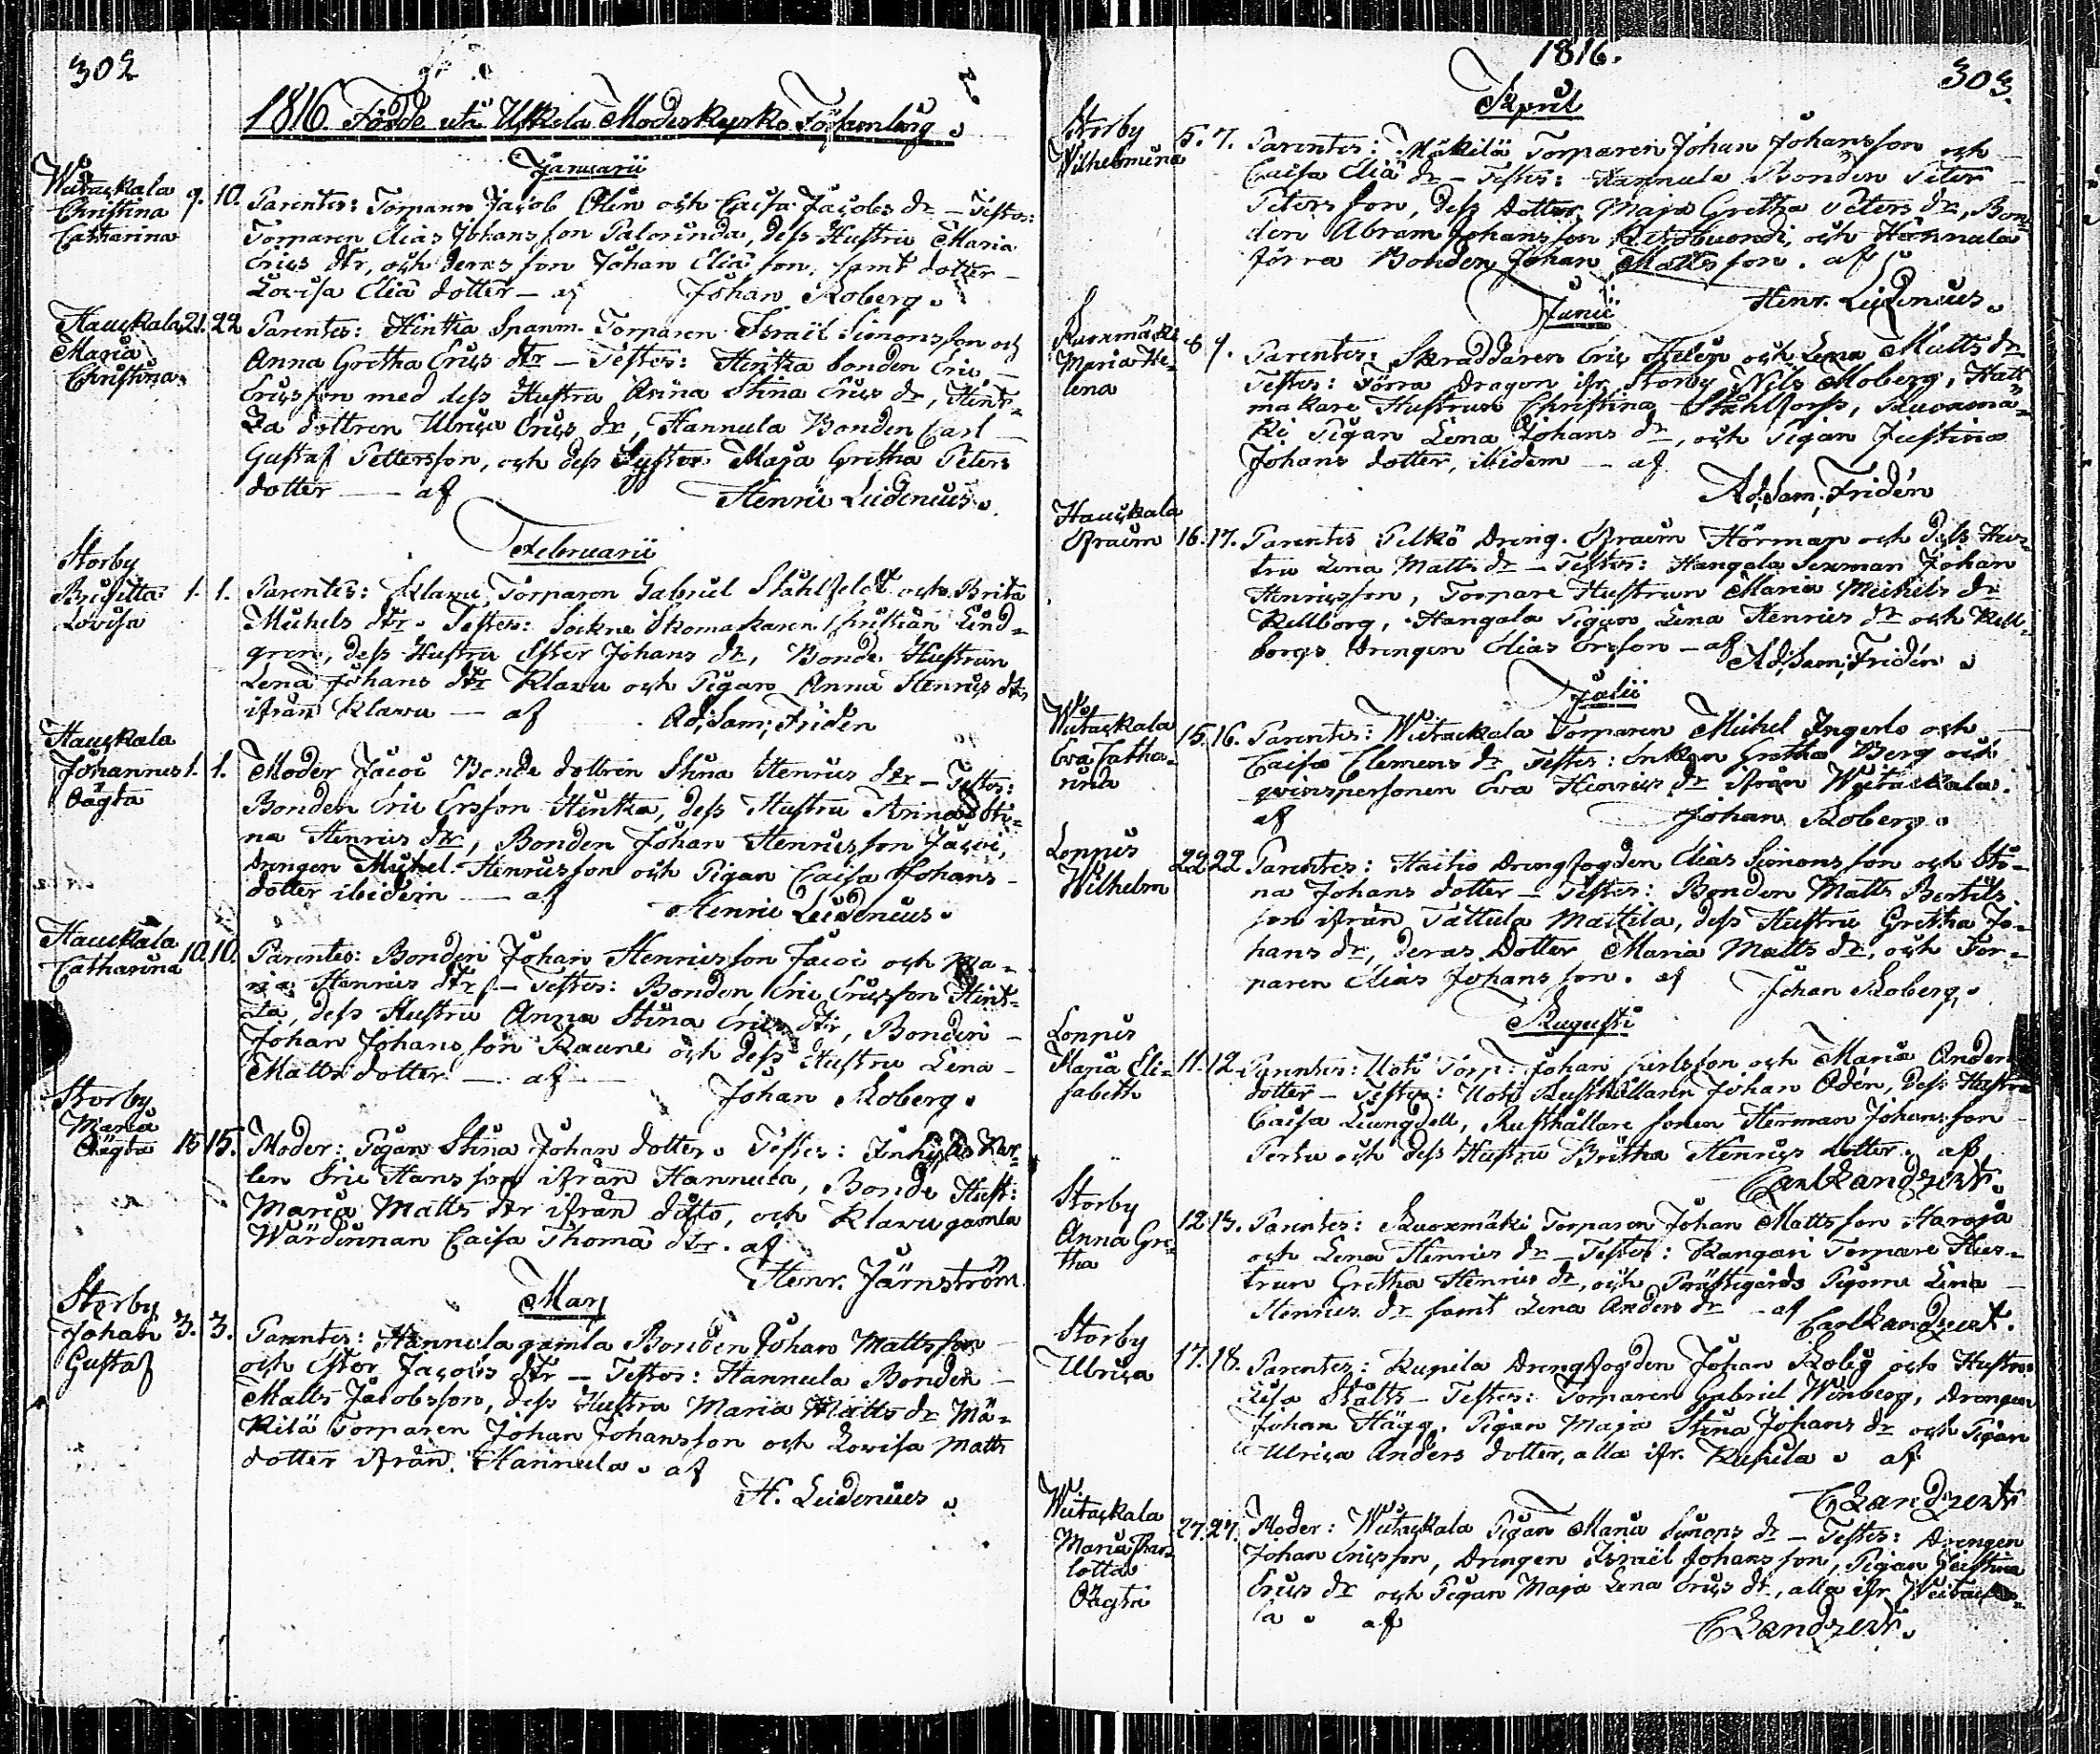 302
1816. Födde uti Uskela Moderkyrko Församling.
Januarii
Wiitaskala
Christina
Catharina
9. 10. Parentes: Torparen Jacob Ohlin och Caisa Jacobs dr – Testes:
Torparen Elias Johansson Palorinda, dess Hustru Maria
Erics dtr, och deras son Johan Elia son, samt dotter
Lovisa Elia dotter – af Johan Roberg.
Hauskala
Maria
Christina
21. 22. Parentes: Hintka Spanm. Torparen Israël Simonsson och
Anna Gretha Erics dtr – Testes: Hintka bonden Eric
Ericsson med dess Hustru Anna Stina Erics dr, Hint-
ka dottren Ulrica Erics dr, Hannula Bonden Carl
Gustaf Pettersson, och dess Syster Maja Gretha Peters
dotter — af Henric Leidenius.
Februarii
Storby
Brigitta
Lovisa
1. 1. Parentes: Klavu Torparen Gabriel Stählfeldt och Brita
Michels dtr. Testes: Sockne Skomakaren Christian Lind-
gren, dess Hustru Ester Johans dr, Bonde Hustrun
Lena Johans dtr Klavu och Pigan Anna Henrics dtr
ifrån Klavu — af Ad; Sam; Fridén
Hauskala
Johannes
Oägta
1. 1. Moder Jacoi Bonde dottren Stina Henrics dtr – Testes:
Bonden Eric Ersson Hintka, dess Hustru Anna Sti-
na Henrics dtr, Bonden Johan Henricsson Jacoi,
drengen Michel Henricsson och Pigan Caisa Johans
dotter ibidem — af Henric Leidenius.
Hauskala
Catharina
10. 10. Parentes: Bonden Johan Henricsson Jacoi och Ma-
ria Henrics dtr – Testes: Bonden Eric Ericsson Hint-
ka, dess Hustru Anna Stina Erics dtr, Bonden
Johan Johansson Raune och dess Hustru Lena
Matts dotter — af Johan Roberg.
Storby
Maria
Oägta
15 15. Moder: Pigan Stina Johan dotter. Testes: Inhyses Kar-
len Eric Hansson ifrån Hannula, Bonde Hust:
Maria Matts dtr ifrån ditto, och Klavu gamla
Wärdinnan Caisa Thoma dtr. af
Henr. Järnström
Marj
Storby
Johan
Gustaf
3. 3. Parentes: Hannula gamla Bonden Johan Mattsson
och Ester Jacobs dtr – Testes: Hannula Bonden
Matts Jacobsson, dess Hustru Maria Matts dr Mä-
kilä Torparen Johan Johansson och Lovisa Matts
dotter ifrån Hannula. af
H. Leidenius.
1816.
303.
April
Storby
Wilhelmina
5. 7. Parentes: Mäkilä Torparen Johan Johansson och
Caisa Elia dr – Testes: Hannula Bonden Peter
Petersson, dess dotter Maja Gretha Peters dr, Bon-
den Abram Johansson, och Hannula
förra Bonden Johan Mattsson. af
Henr. Leidenius.
Junii
Kuoxmäki
Maria He-
lena
8 9. Parentes: Skraddaren Eric Helen och Lena Matts dr
Testes: Förra dragon ifr. Storby Nils Moberg, Hatt-
makare Hustrun Christina Ståhlfors, Kuoxmä-
ki Pigan Lena Johans dr, och Pigan Justina
Johans dotter, ibidem — af
Ad; Sam; Fridén
Hauskala
Efraim 16. 17. Parentes Pelkö dreng. Efraim Hörman och dess Hus-
tru Lena Matts dr – Testes: Hangala Sexman Johan
Henricsson, Torpare Hustrun Maria Michels dr
Kellborg, Hangala Pigan Lena Henrics dr och Kell-
borgs drengen Elias Ersson – af Ad; Sam; Fridén.
Julii
Wiitaskala
Eva Catha-
rina
15. 16. Parentes: Wiitaskala Torparen Michel Ingerlo och
Caisa Clemens dr Testes: Enkan Gretha Berg och
qvinspersonen Eva Henrics dr ifrån Wiitaskala.
af Johan Roberg.
Loppis
Wilhelm
22 22 Parentes: Haitio drengfogden Elias Simonsson och Sti-
na Johans dotter – Testes: Bonden Matts Bertils
son ifrån Tattula Mattila, dess Hustru Gretha Jo-
hans dr, deras Dotter Maria Matts dr, och Tor-
paren Elias Johansson. af Johan Roberg.
Augusti
Loppis
Maria Eli-
sabeth
11. 12. Parentes: Uoti Torp: Johan Carlsson och Maria Anders
dotter – Testes: Uoti Rusthållaren Johan Odén, dess Hustru
Caisa Liungdell, Rusthållare sonen Herman Johansson
Pertu och dess Hustru Britha Henrics dotter. af
Carl Landzert.
Storby
Anna Gre-
tha
12. 13. Parentes: Kuoxmäki Torparen Johan Mattsson Haroja
och Lena Henrics dr – Testes: Kangari Torpare Hus-
trun Gretha Henrics dr, och Prästegårds Pigorna Lena
Henrics dr samt Lena Anders dr – af Carl Landzert.
Storby
Ulrica
17. 18. Parentes: Kupila drengfogden Johan Robig och Hustru
Lisa Stålts – Testes: Torparen Gabriel Winberg, drengen
Johan Hägg, Pigan Maja Stina Johans dr och Pigan
Ulrica Anders dotter, alla ifr. Kupila. af
C Landzert
Wiitaskala
Maria Char-
lotta
Oägta
27. 27. Moder: Wiitaskala Pigan Maria Simons dr – Testes: drengen
Johan Ericsson, drengen Israël Johansson, Pigan Justina
Erics dr och Pigan Maja Lena Erics dr, alla ifr. Wiitaska-
la. af
C Landzert.